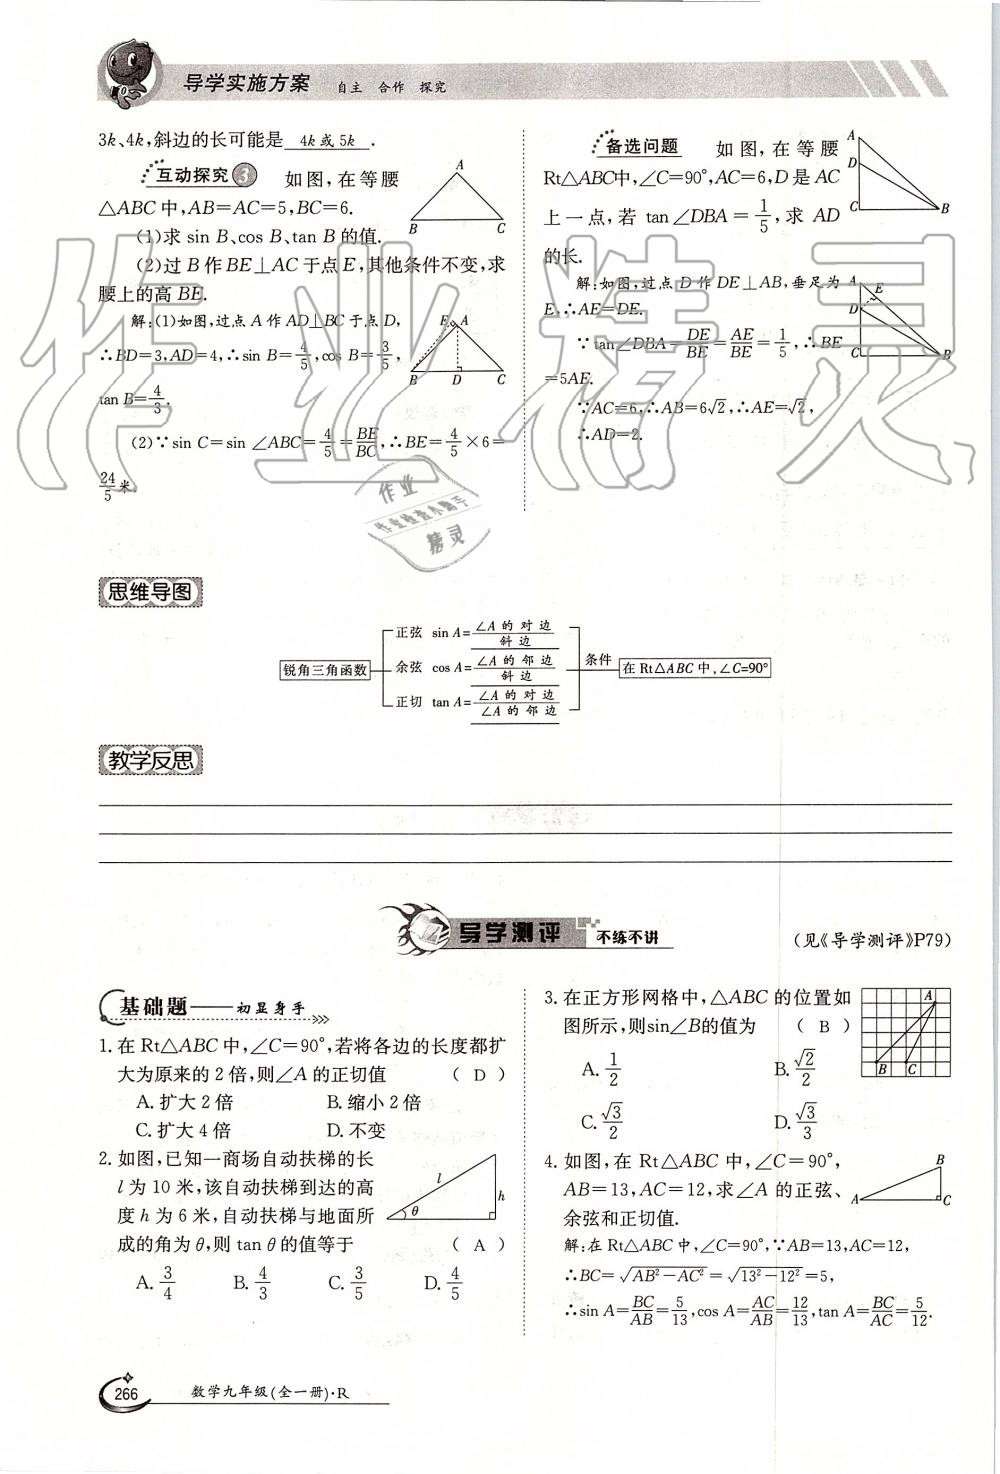 导学实施方案 自主 合作 探究
3k、4k,斜边的长可能是 4k 或 5k .
互动探究 3 如图,在等腰
△ABC 中,AB=AC=5,BC=6.
(1)求 sin B、cos B、tan B 的值.
(2)过 B 作 BE⊥AC 于点 E,其他条件不变,求
腰上的高 BE.
解:(1)如图,过点 A 作 AD⊥BC 于点 D,
∴BD=3,AD=4,∴sin B=4/5,cos B=3/5,
tan B=4/3.
(2)∵sin C=sin ∠ABC=4/5=BE/BC,∴BE=4/5×6=
24/5米.
A
B C
E A
B D C
备选问题 如图,在等腰
Rt△ABC中,∠C=90°,AC=6,D 是 AC
上一点,若 tan∠DBA=1/5,求 AD
的长.
解:如图,过点 D 作 DE⊥AB,垂足为
E,∴AE=DE.
∵tan∠DBA=DE/BE=AE/BE=1/5,∴BE
=5AE.
∵AC=6,∴AB=6√2,∴AE=√2,
∴AD=2.
A
D
C B
A E
D
C B
作业精灵
作业
作业检查小助手
精灵
思维导图
锐角三角函数
正弦 sin A=∠A 的 对 边/斜 边
余弦 cos A=∠A 的 邻 边/斜 边
正切 tan A=∠A 的 对 边/∠A 的 邻 边
条件
在 Rt△ABC 中,∠C=90°
教学反思
导学测评 不练不讲
(见《导学测评》P79)
基础题——初显身手
1. 在 Rt△ABC 中,∠C=90°,若将各边的长度都扩
大为原来的 2 倍,则∠A 的正切值 ( D )
A. 扩大 2 倍 B. 缩小 2 倍
C. 扩大 4 倍 D. 不变
2. 如图,已知一商场自动扶梯的长
l 为 10 米,该自动扶梯到达的高
度 h 为 6 米,自动扶梯与地面所
成的角为 θ,则 tan θ 的值等于 ( A )
A. 3/4 B. 4/3 C. 3/5 D. 4/5
l h
θ
3. 在正方形网格中,△ABC 的位置如
图所示,则sin∠B的值为 ( B )
A. 1/2 B. √2/2
C. √3/2 D. √3/3
A
B C
4. 如图,在 Rt△ABC 中,∠C=90°,
AB=13,AC=12,求∠A 的正弦、
余弦和正切值.
解:在 Rt△ABC 中,∠C=90°,∵AB=13,AC=12,
∴BC=√(AB²-AC²)=√(13²-12²)=5,
∴sin A=BC/AB=5/13,cos A=AC/AB=12/13,tan A=BC/AC=5/12.
B
A C
266 数学九年级(全一册)·R